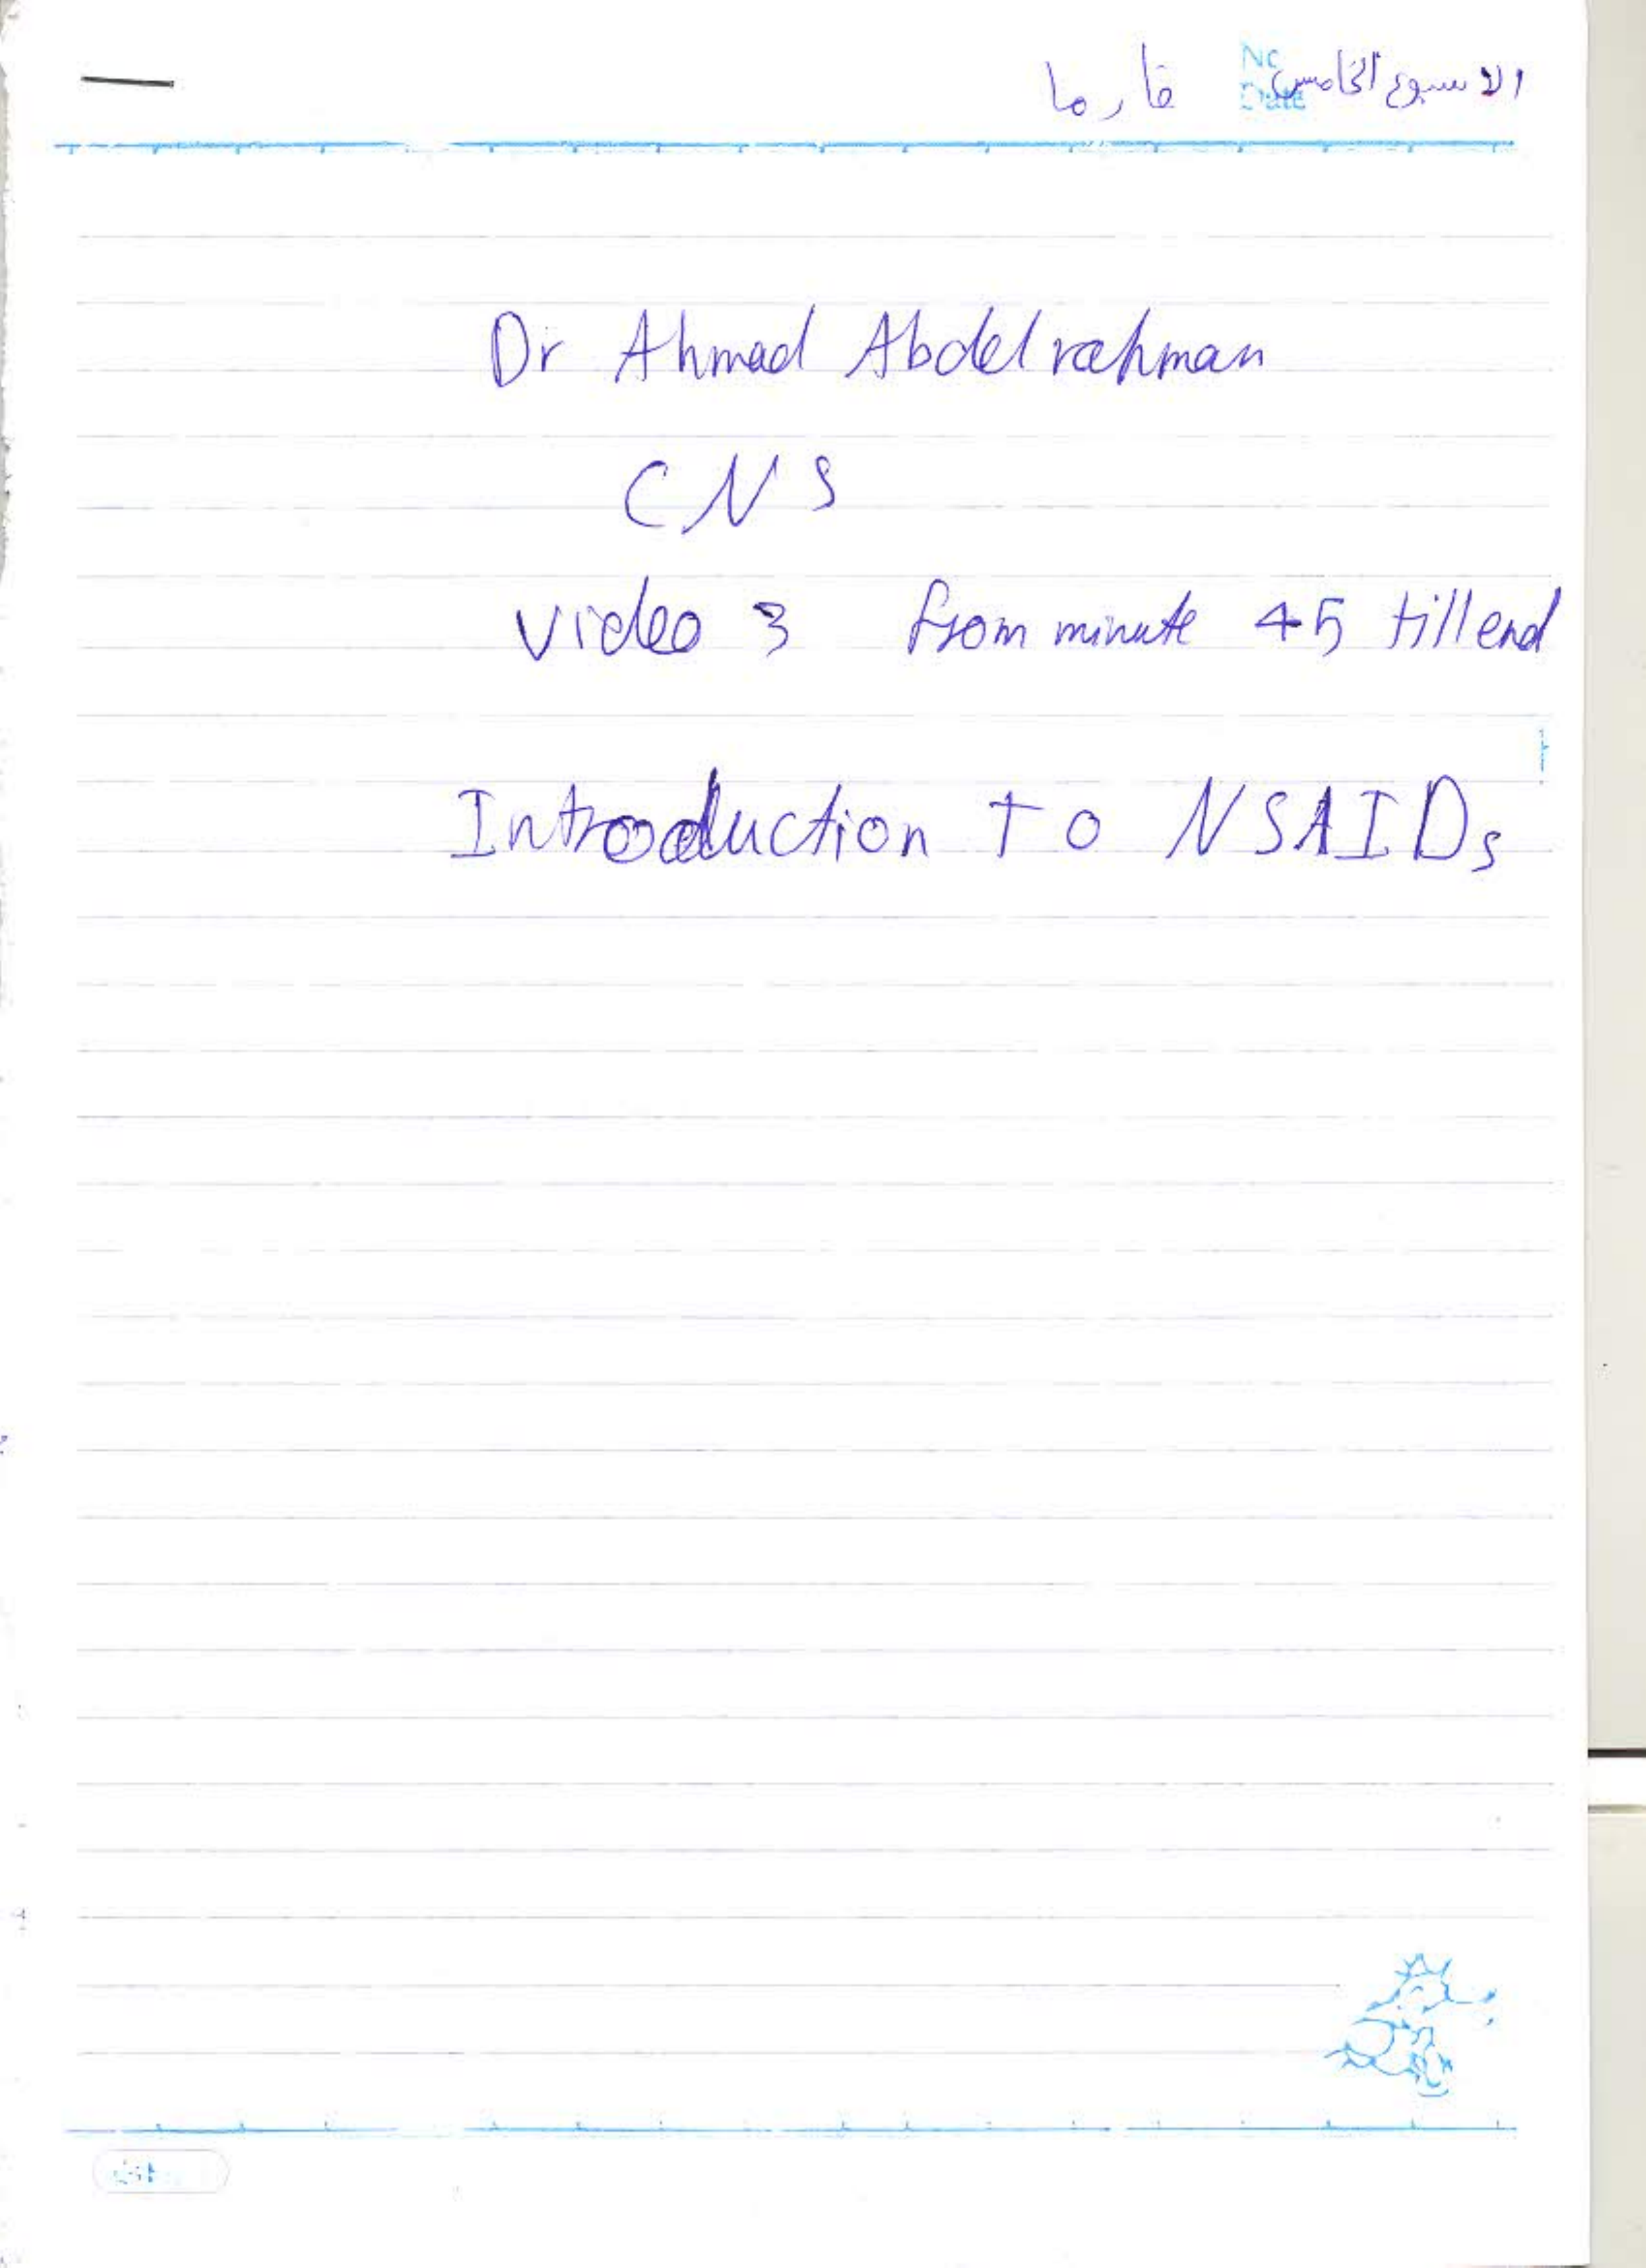 الاسبوع الخامس فارما
No
Date
Dr Ahmad Abdelrahman
CNS
video 3 from minute 45 till end
Introduction To NSAIDs